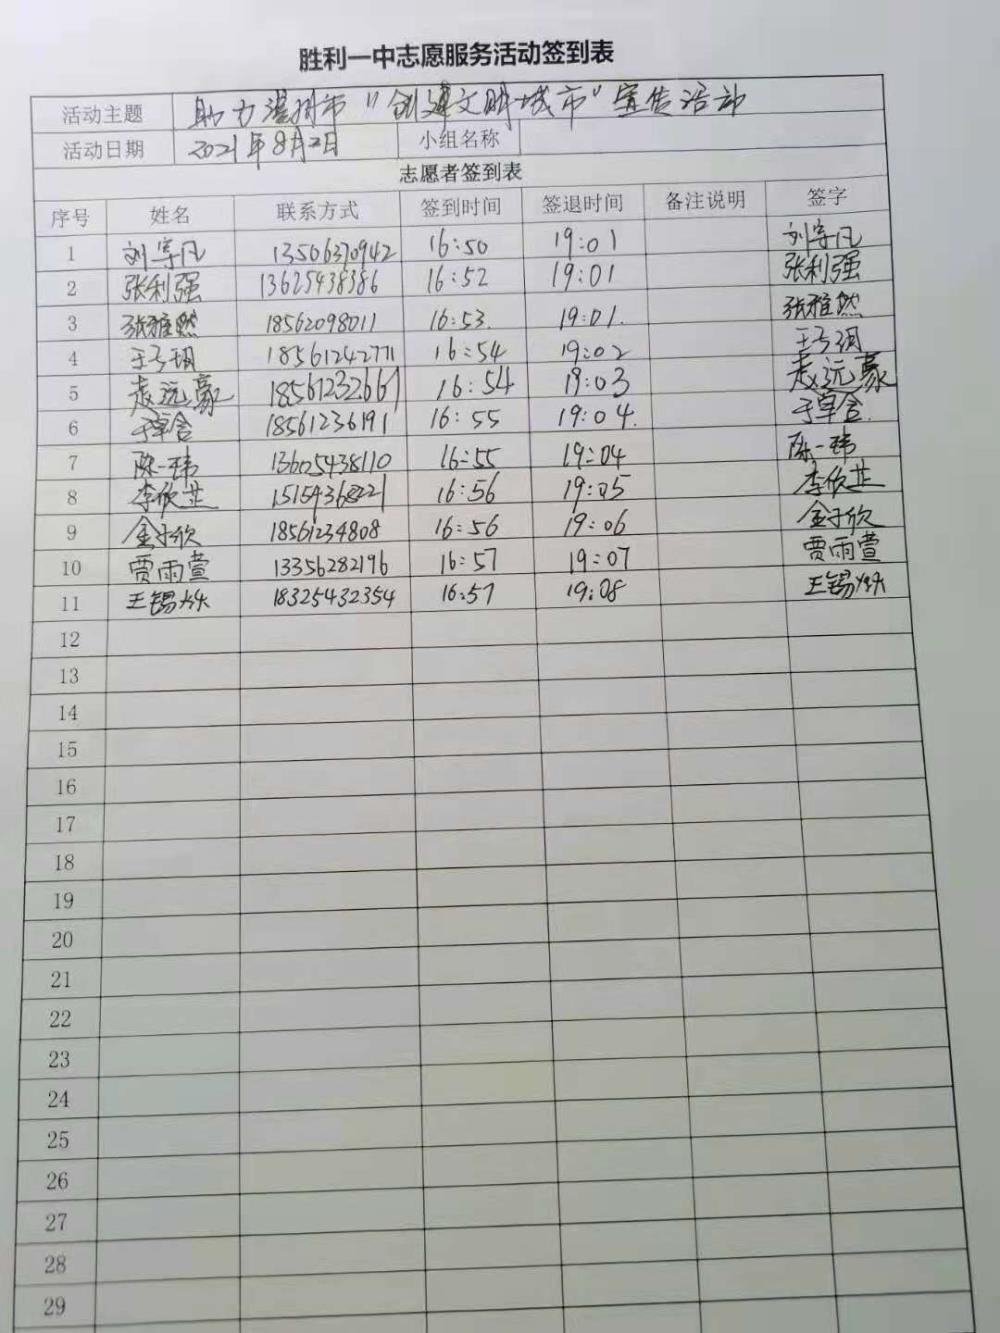 胜利一中志愿服务活动签到表
活动主题 助力滨州市“创建文明城市”宣传活动
活动日期 2021年8月2日 小组名称
志愿者签到表
序号 姓名 联系方式 签到时间 签退时间 备注说明 签字
1 刘宇凡 13506370942 16:50 19:01 刘宇凡
2 张利强 13625438386 16:52 19:01 张利强
3 张雅然 18562098011 16:53 19:01. 张雅然
4 18561242771 16:54 19:02
5 赵远豪 18561232661 16:54 19:03 赵远豪
6 于卓含 18561236191 16:55 19:04. 于卓含.
7 陈一玮 13605438110 16:55 19:04 陈一玮
8 李欣芷 16:56 19:05 李欣芷
9 金子欣 18561234808 16:56 19:06 金子欣
10 贾雨萱 13356282196 16:57 19:07 贾雨萱
11 王锡焱 18325432354 16:57 19:08 王锡焱
12
13
14
15
16
17
18
19
20
21
22
23
24
25
26
27
28
29